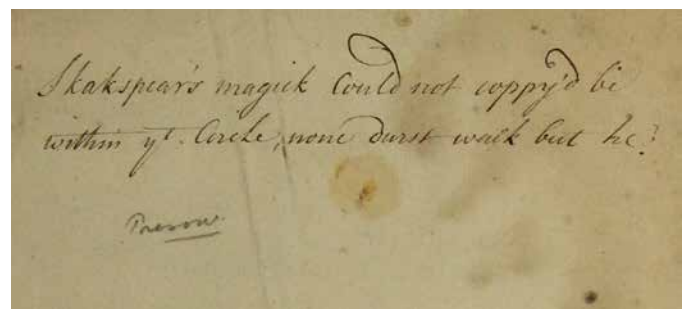 Shakspear's magick Could not coppy'd be
within yt. Circle, none durst walk but he?